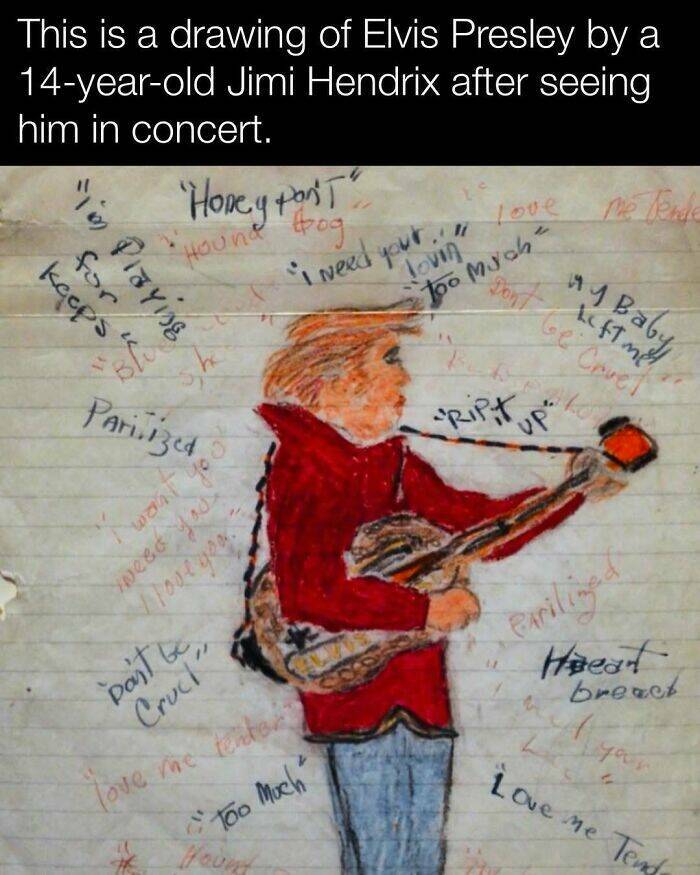 This is a drawing of Elvis Presley by a
14-year-old Jimi Hendrix after seeing
him in concert.
"Honey Don'T"
love me Tende
"is Playing
for
Keeps"
"Hound Dog"
"i Need your
lovin"
"Too Much"
My Baby
Left me"
Dont be Cruel"
"Blue
Paril;ized
"RiP it UP"
"i want you
need you
I love you"
ELVIS
Parilized
"Don't be
Cruel"
Heart
breack
"love me tender
"Too Much"
Love me Tend
Hound